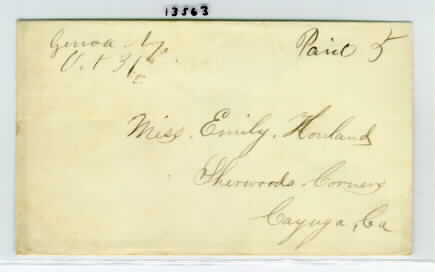 13563
Genoa Ny
Oct 31st
Paid 5
Miss. Emily. Howland
Sherwoods Corners
Cayuga, Co